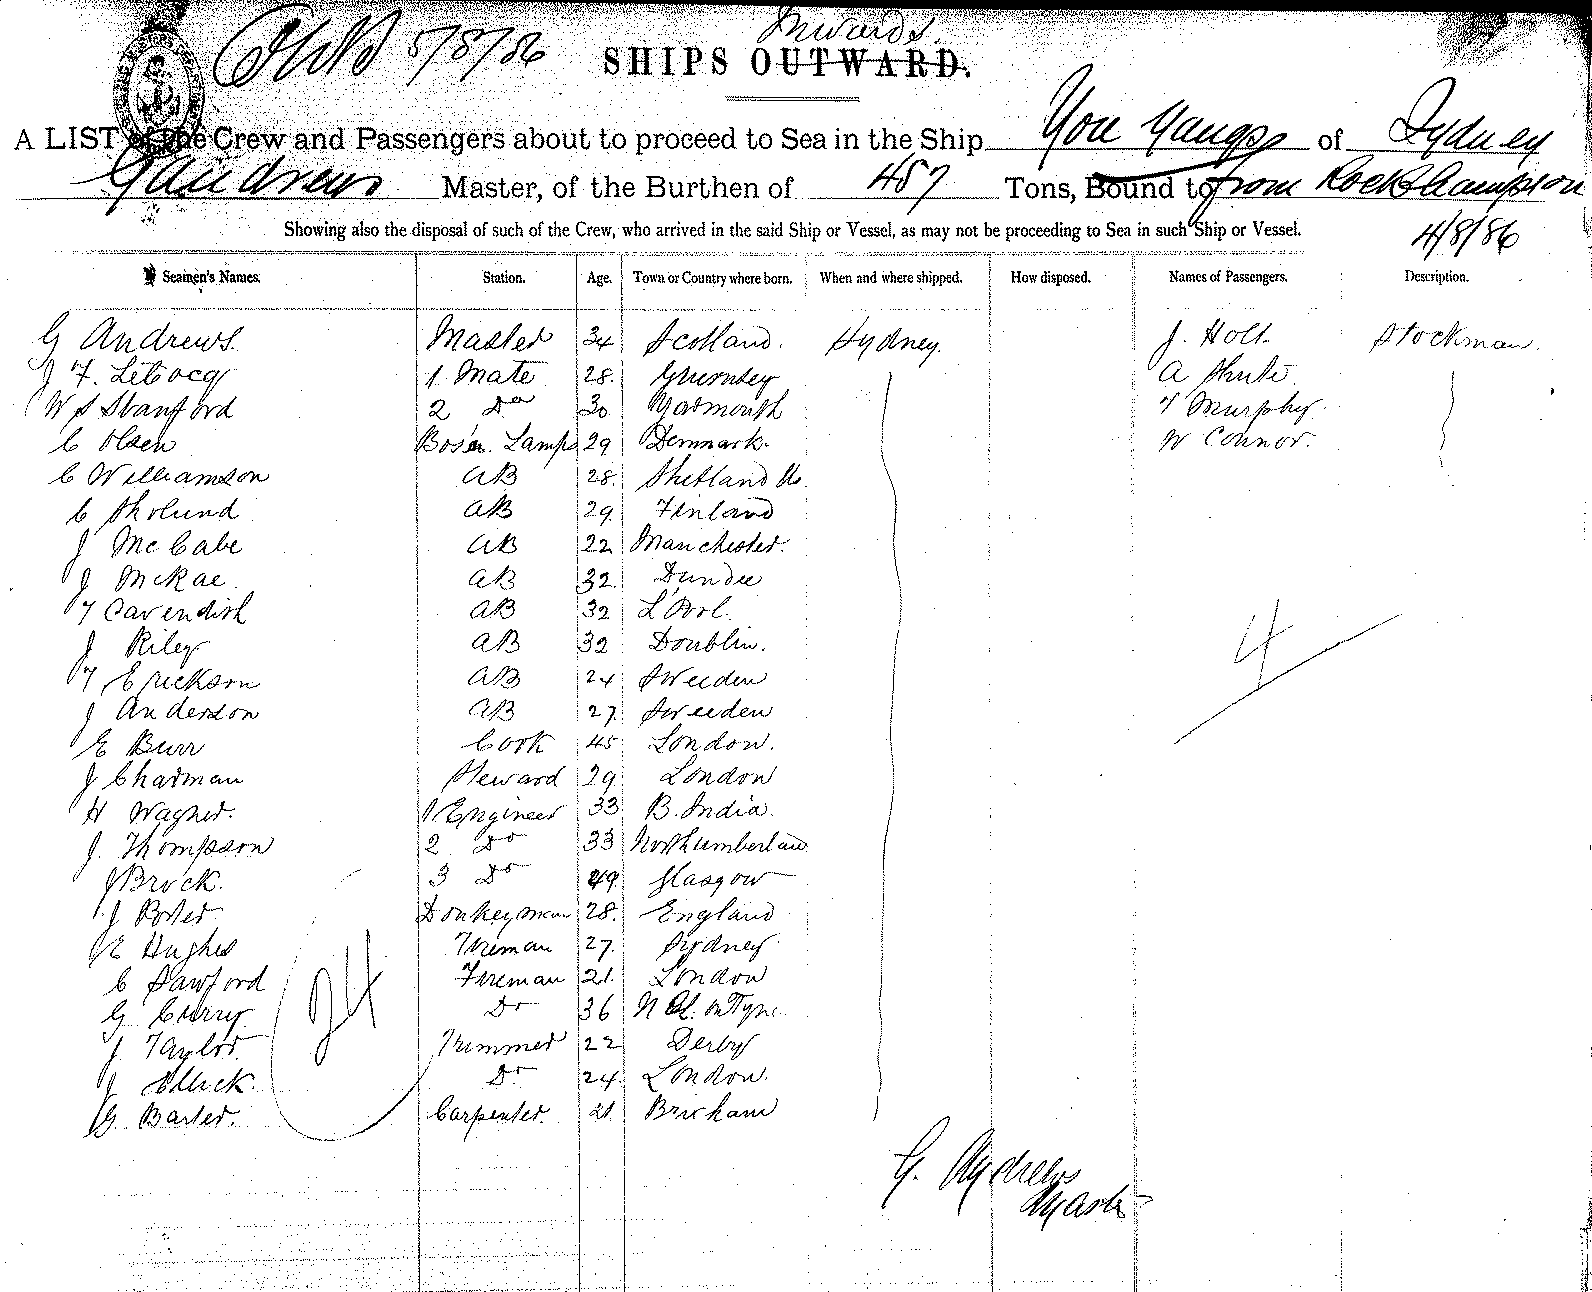 5/8/86
Inwards.
SHIPS OUTWARD.
A LIST of the Crew and Passengers about to proceed to Sea in the Ship You Yangs of Sydney
G Andrews Master, of the Burthen of 457 Tons, Bound to from Rockhampton
Showing also the disposal of such of the Crew, who arrived in the said Ship or Vessel, as may not be proceeding to Sea in such Ship or Vessel.
4/8/86
Seamen's Names. Station. Age. Town or Country where born. When and where shipped. How disposed. Names of Passengers. Description.
G Andrews. Master 34 Scotland. Sydney. J. Holt. Stockman.
J F. LeCocq 1. Mate 28. Guernsey A Shute
W S Stanford 2 Do 30 Yarmouth T Murphy
C Olsen Bos'n. Lamps 29 Denmark. W Connor.
C Williamson AB 28. Shetland Is.
C Skolund AB 29. Finland
J McCabe AB 22 Manchester.
J McRae. AB 32. Dundee
T Cavendish AB 32 L'Pool.
J Riley AB 32 Doublin.
T Erickson AB 24 Sweeden
J Anderson AB 27. Sweeden
4
E Burr Cook 45 London.
J Chatman Steward 29 London
H Wagner. 1 Engineer 33 B. India.
J. Thompson 2 Do 33 Northumberlan
J Brock. 3 Do 49. Glasgow
J Porter Donkeyman 28. England
E Hughes Fireman 27. Sydney
C Sawford Fireman 21. London
24
G Curry Do 36 N Cl. on Tyne
J. Taylor. Trimmer 22 Derby
J Ellick. Do 24. London.
G Barter. Carpenter. 21 Brixham
G. Andrews
Master